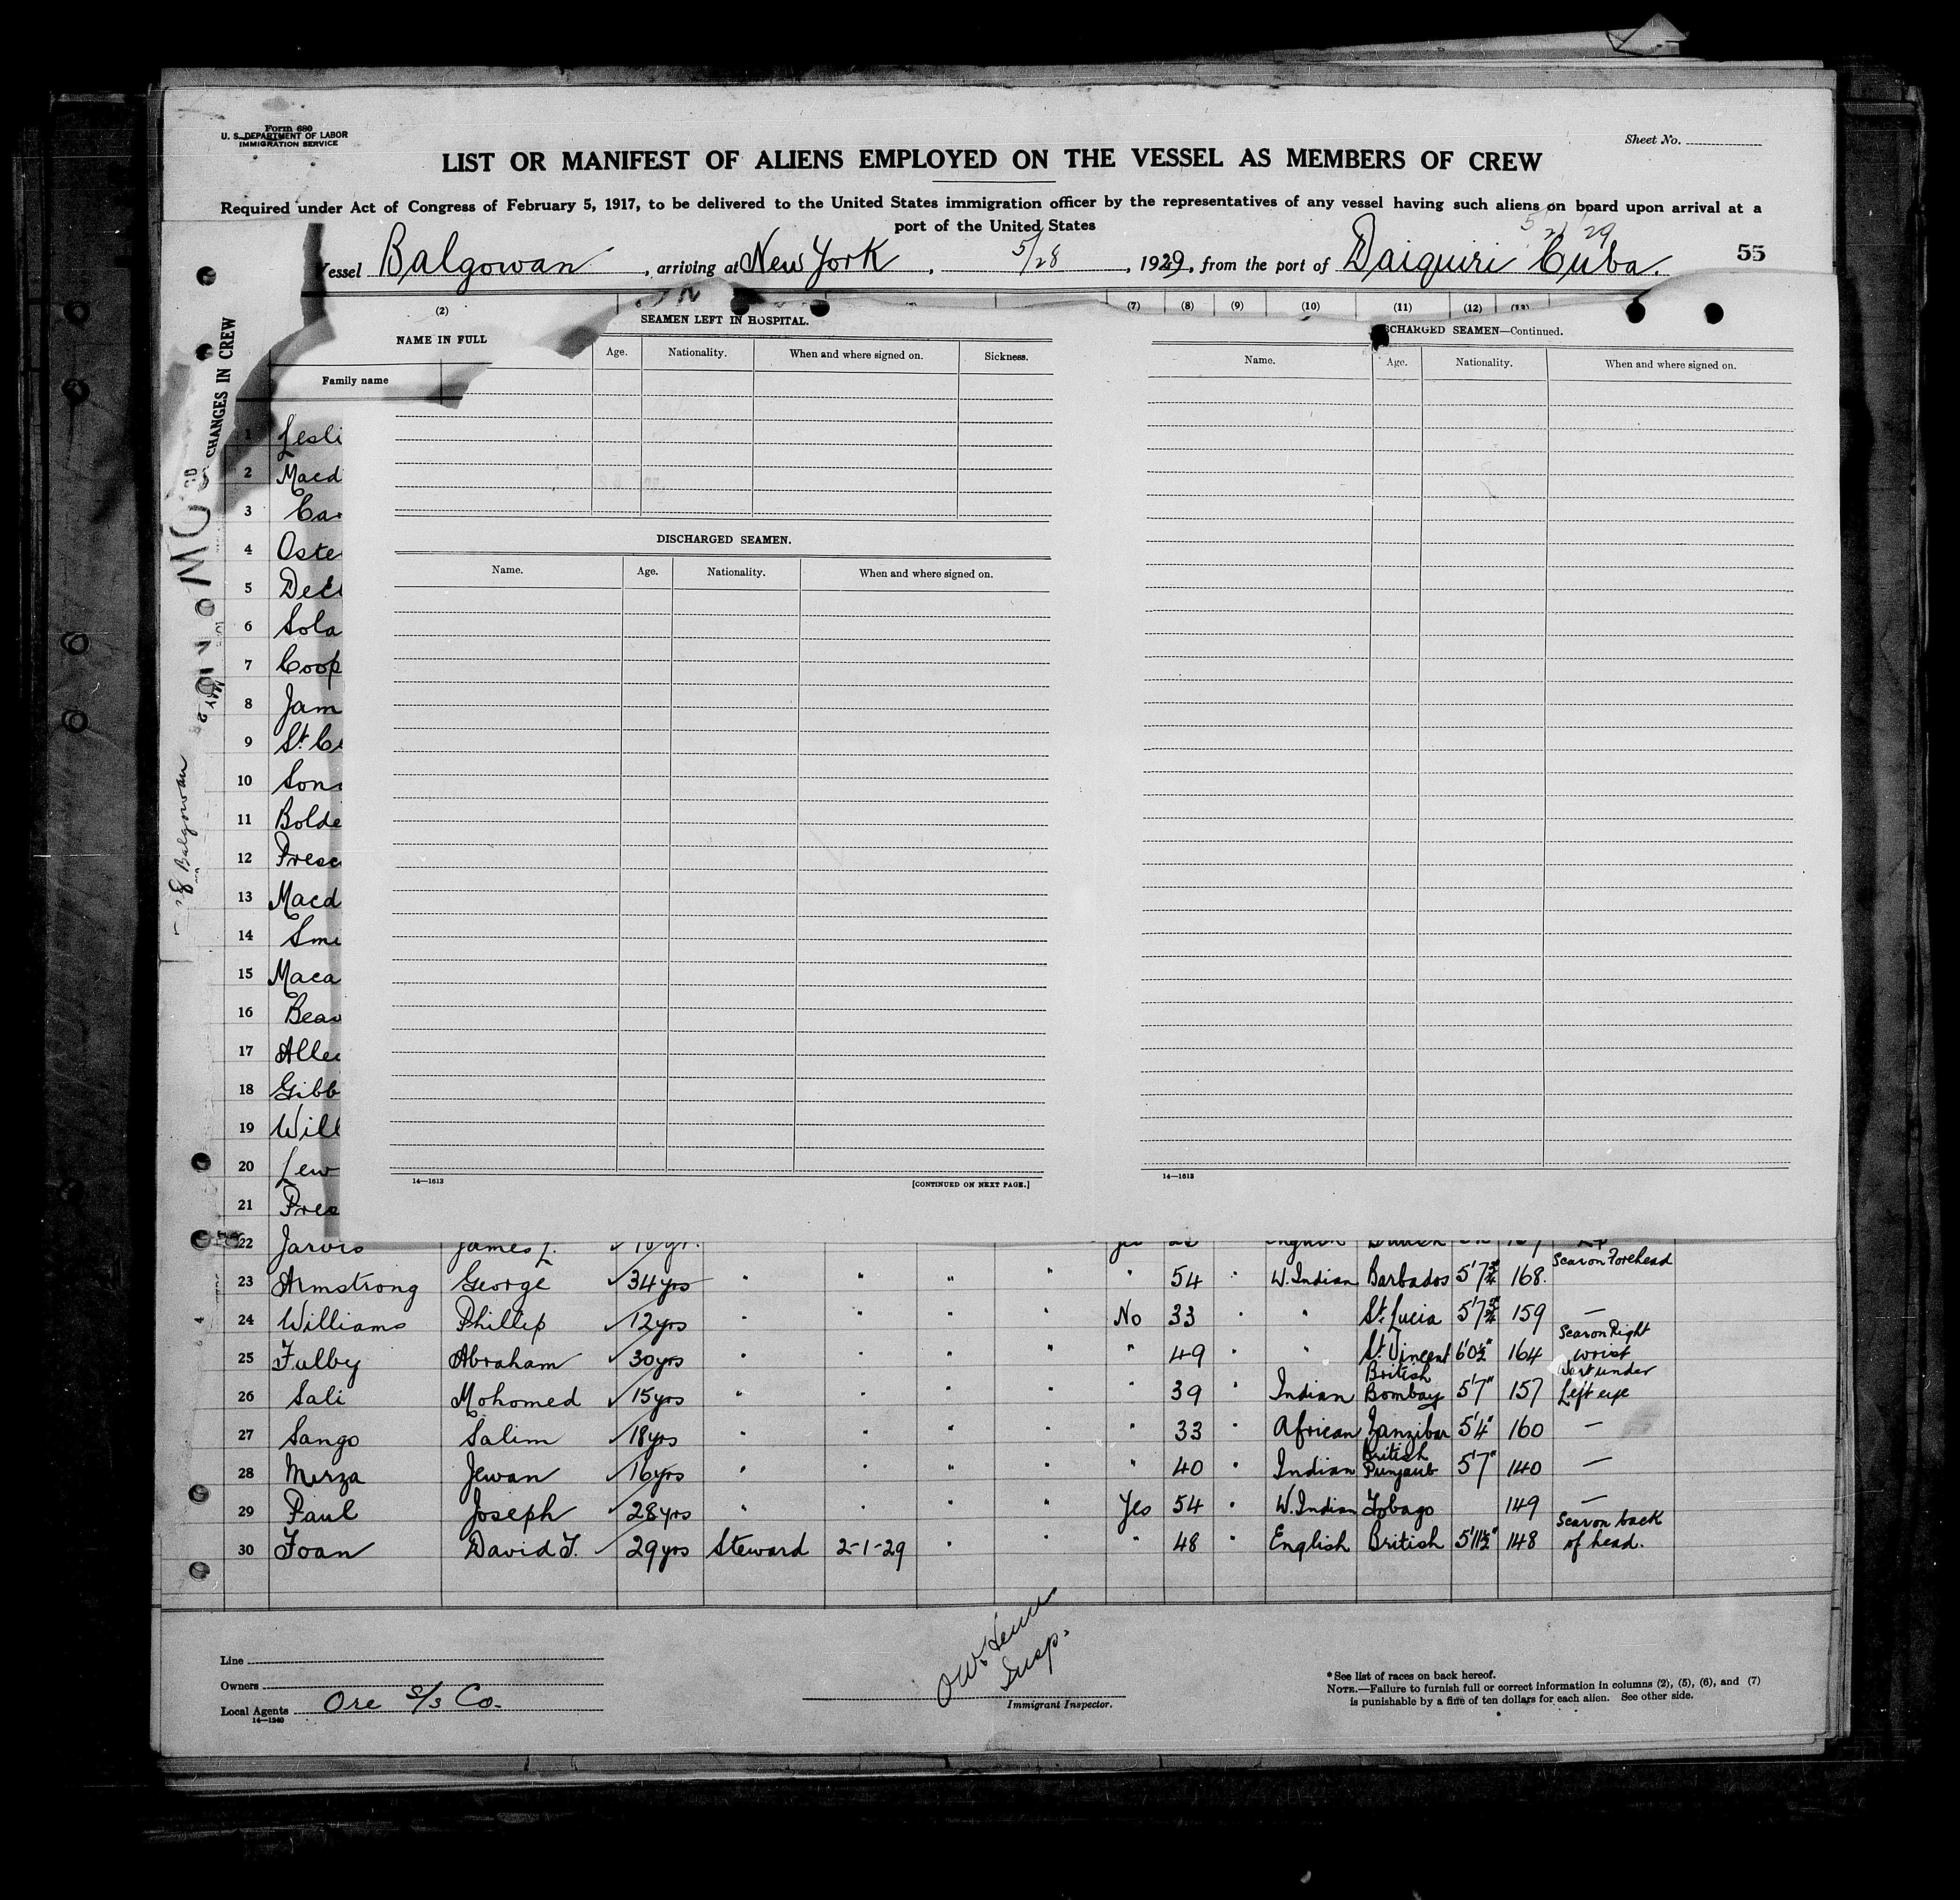 Form 680
U. S. DEPARTMENT OF LABOR
IMMIGRATION SERVICE
Sheet No.
LIST OR MANIFEST OF ALIENS EMPLOYED ON THE VESSEL AS MEMBERS OF CREW
Required under Act of Congress of February 5, 1917, to be delivered to the United States immigration officer by the representatives of any vessel having such aliens on board upon arrival at a
port of the United States
Vessel Balgowan, arriving at New York, 5/28, 1929, from the port of Daiquiri Cuba.
55
(2) (7) (8) (9) (10) (11) (12) (13)
CHANGES IN CREW
Balgowan
NAME IN FULL
Family name
SEAMEN LEFT IN HOSPITAL.
Age. Nationality. When and where signed on. Sickness.
DISCHARGED SEAMEN.
Name. Age. Nationality. When and where signed on.
14—1613 [CONTINUED ON NEXT PAGE.]
SCHARGED SEAMEN—Continued.
Name. Age. Nationality. When and where signed on.
14—1613
1 Lesli
2 Macd
3 Car
4 Oste
5 DeEl
6 Sola
7 Coop
8 Jam
9 St. Cl
10 Sons
11 Bolde
12 Presc
13 Macd
14 Smi
15 Maca
16 Beav
17 Alle
18 Gibb
19 Will
20 Lew
21 Pres
22 Jarvis James
23 Armstrong George 34yrs " " " " " 54 " W. Indian Barbados 5'7¾ 168. Scar on Forehead
24 Williams Phillip 12yrs " " " " No 33 " " St. Lucia 5'7¾ 159 —
25 Fulby Abraham 30yrs " " " " " 49 " " St. Vincent 6'0½" 164 Scar on Right wrist
26 Sali Mohomed 15yrs " " " " " 39 " Indian British Bombay 5'7" 157 Wart under Left eye
27 Sango Salim 18yrs " " " " " 33 " African Zanzibar 5'4" 160 —
28 Mirza Jewan 16yrs " " " " " 40 " Indian British Punjaub 5'7" 140 —
29 Paul Joseph 28yrs " " " " Yes 54 " W. Indian Tobago 149 —
30 Foan David T. 29yrs Steward 2-1-29 " " " 48 " English British 5'11½" 148 Scar on back of head.
Line
Owners
Local Agents Ore S/S Co.
14—1240
Insp.
Immigrant Inspector.
* See list of races on back hereof.
NOTE.—Failure to furnish full or correct information in columns (2), (5), (6), and (7)
is punishable by a fine of ten dollars for each alien. See other side.